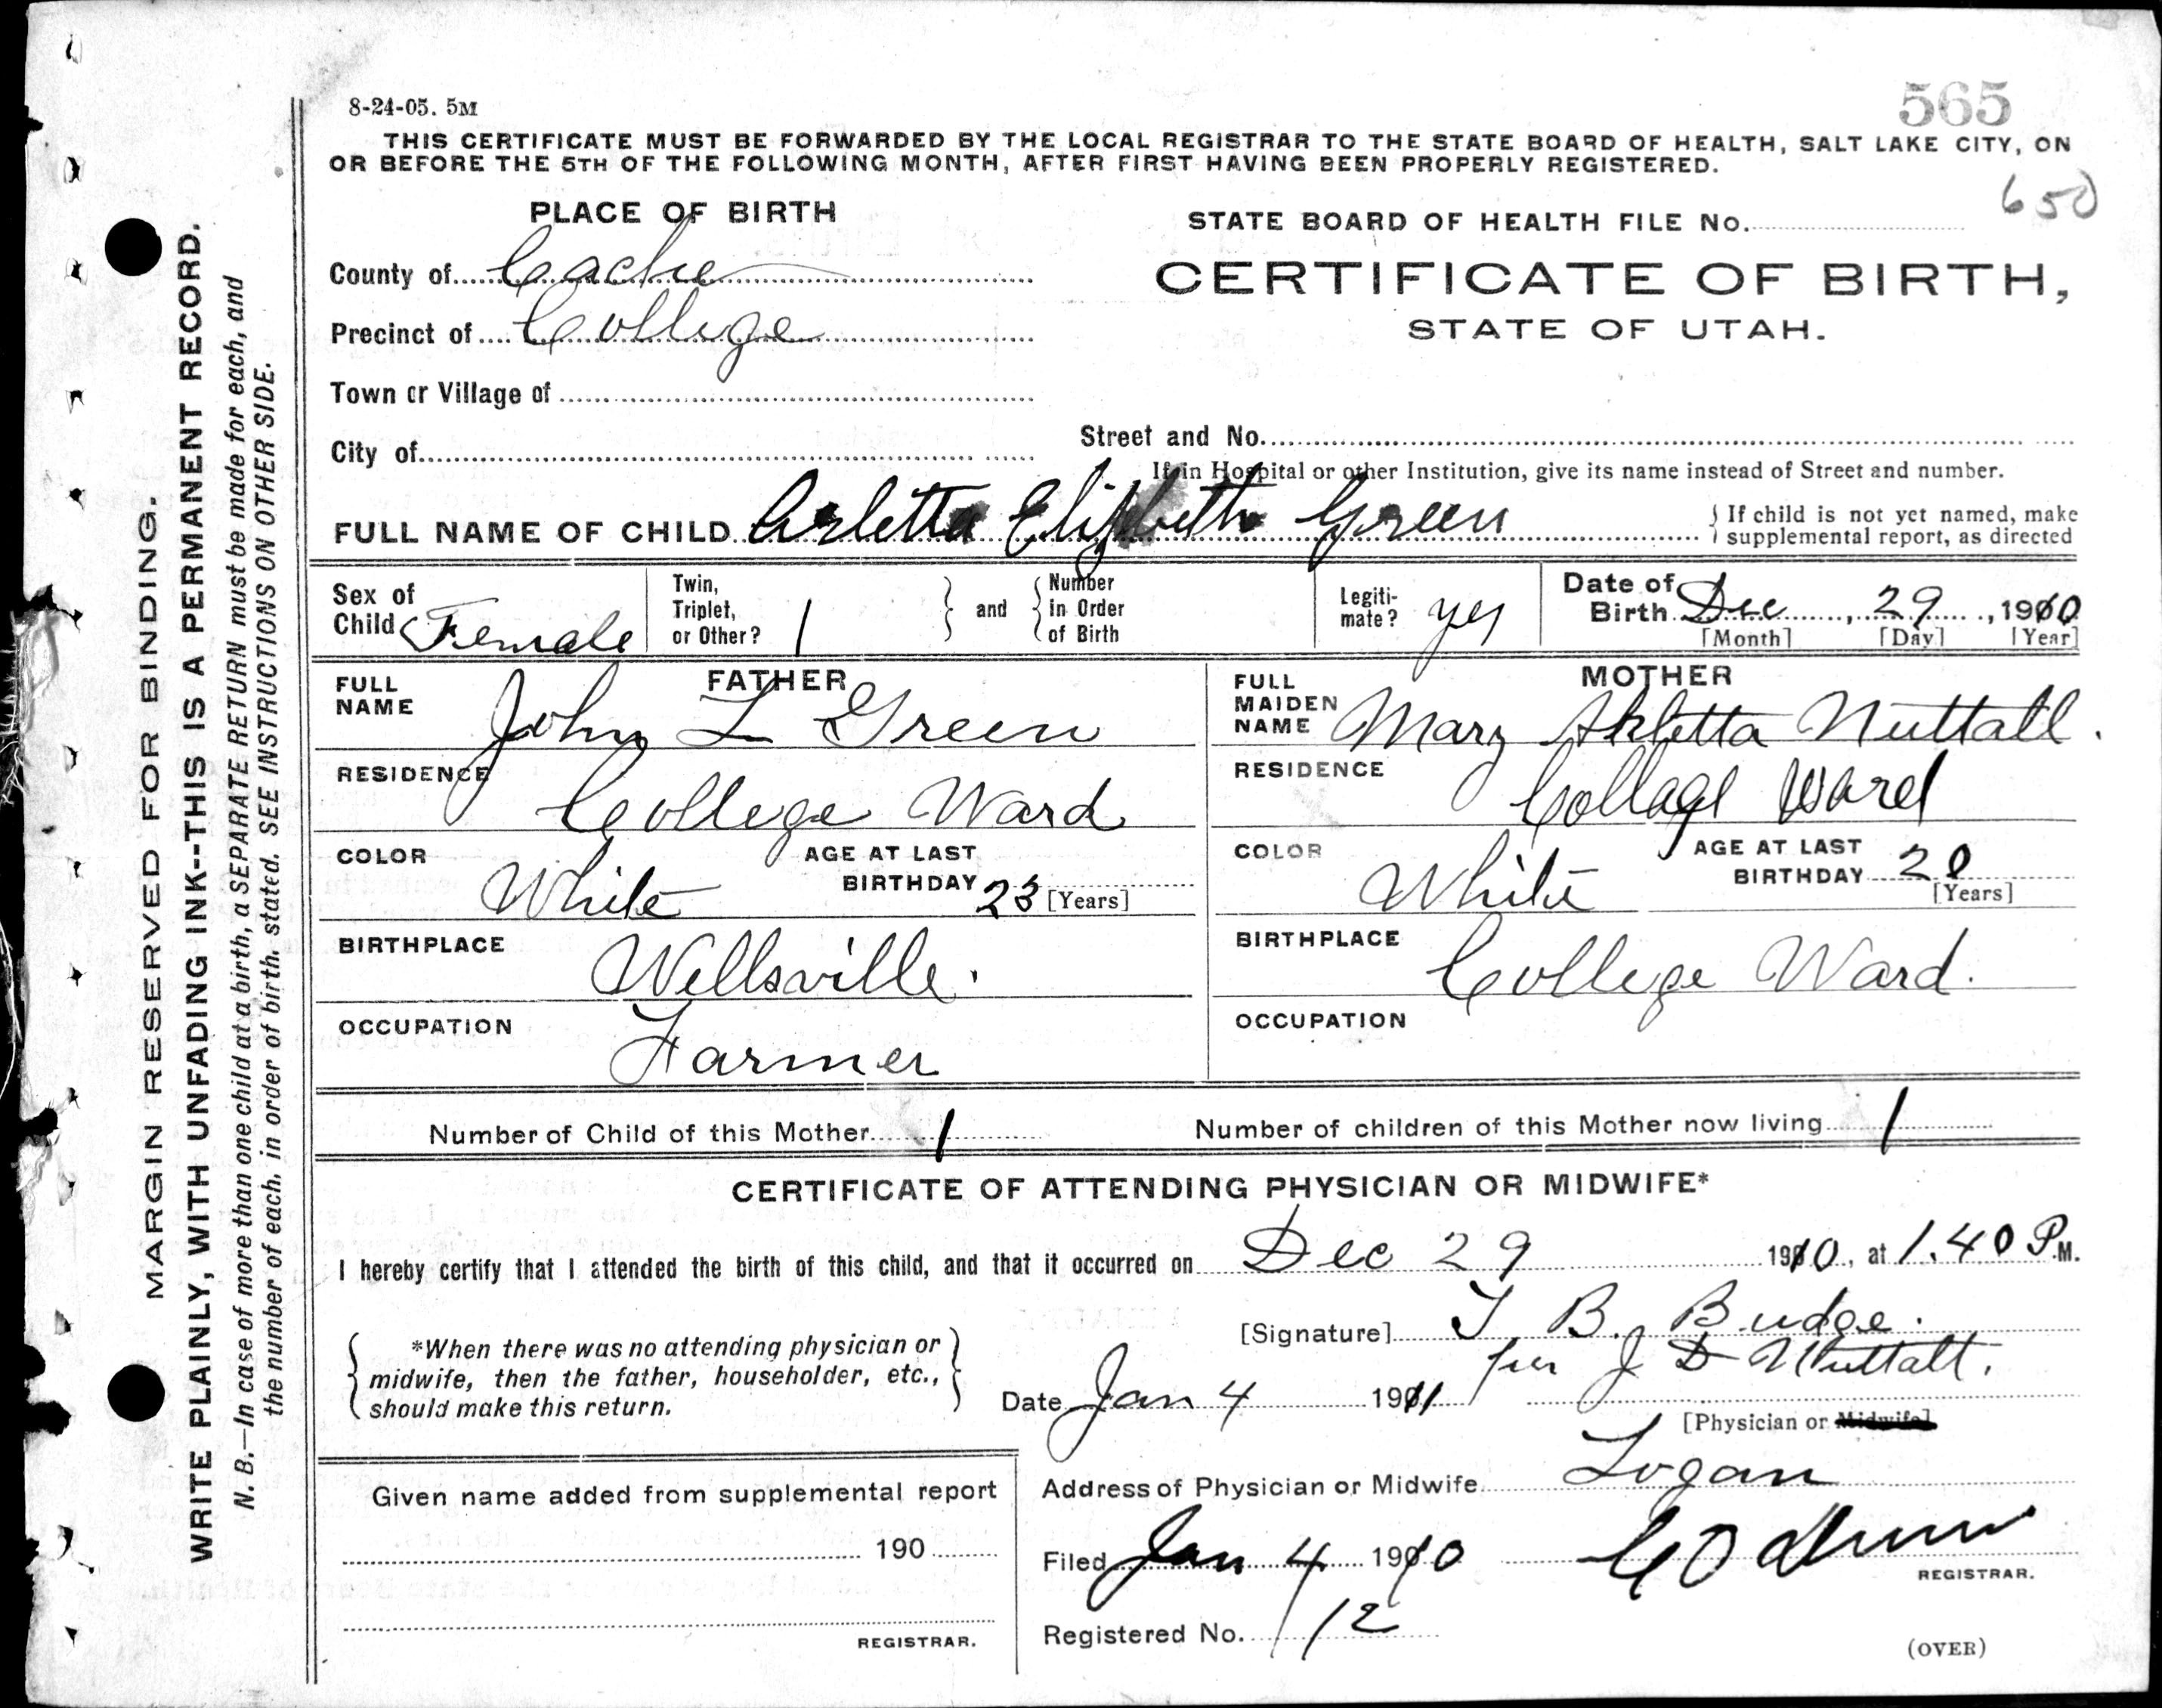 565
8-24-05. 5M
THIS CERTIFICATE MUST BE FORWARDED BY THE LOCAL REGISTRAR TO THE STATE BOARD OF HEALTH, SALT LAKE CITY, ON
OR BEFORE THE 5TH OF THE FOLLOWING MONTH, AFTER FIRST HAVING BEEN PROPERLY REGISTERED.
650
PLACE OF BIRTH
STATE BOARD OF HEALTH FILE No.
County of Cache
CERTIFICATE OF BIRTH,
Precinct of College
STATE OF UTAH.
Town or Village of
Street and No.
City of
If in Hospital or other Institution, give its name instead of Street and number.
FULL NAME OF CHILD Arletta Elizabeth Green
If child is not yet named, make
supplemental report, as directed
Sex of Child Female
Twin, Triplet, or Other? 1 and Number in Order of Birth
Legiti-mate? yes
Date of Birth Dec, 29, 1910
[Month] [Day] [Year]
FATHER
FULL NAME John L Green
RESIDENCE College Ward
COLOR White AGE AT LAST BIRTHDAY 23 [Years]
BIRTHPLACE Wellsville.
OCCUPATION Farmer
MOTHER
FULL MAIDEN NAME Mary Nuttall.
RESIDENCE Collage Ward
COLOR White AGE AT LAST BIRTHDAY 20 [Years]
BIRTHPLACE College Ward.
OCCUPATION
Number of Child of this Mother 1 Number of children of this Mother now living 1
CERTIFICATE OF ATTENDING PHYSICIAN OR MIDWIFE*
I hereby certify that I attended the birth of this child, and that it occurred on Dec 29 1910, at 1.40 P.M.
[Signature] T B. Budge.
per J D Nuttall.
*When there was no attending physician or
midwife, then the father, householder, etc.,
should make this return.
Date Jan 4 1911
[Physician or Midwife]
Address of Physician or Midwife Logan
Given name added from supplemental report
190
REGISTRAR.
Filed Jan 4 1910
REGISTRAR.
Registered No. 12
(OVER)
MARGIN RESERVED FOR BINDING.
WRITE PLAINLY, WITH UNFADING INK--THIS IS A PERMANENT RECORD.
N. B.—In case of more than one child at a birth, a SEPARATE RETURN must be made for each, and
the number of each, in order of birth, stated. SEE INSTRUCTIONS ON OTHER SIDE.